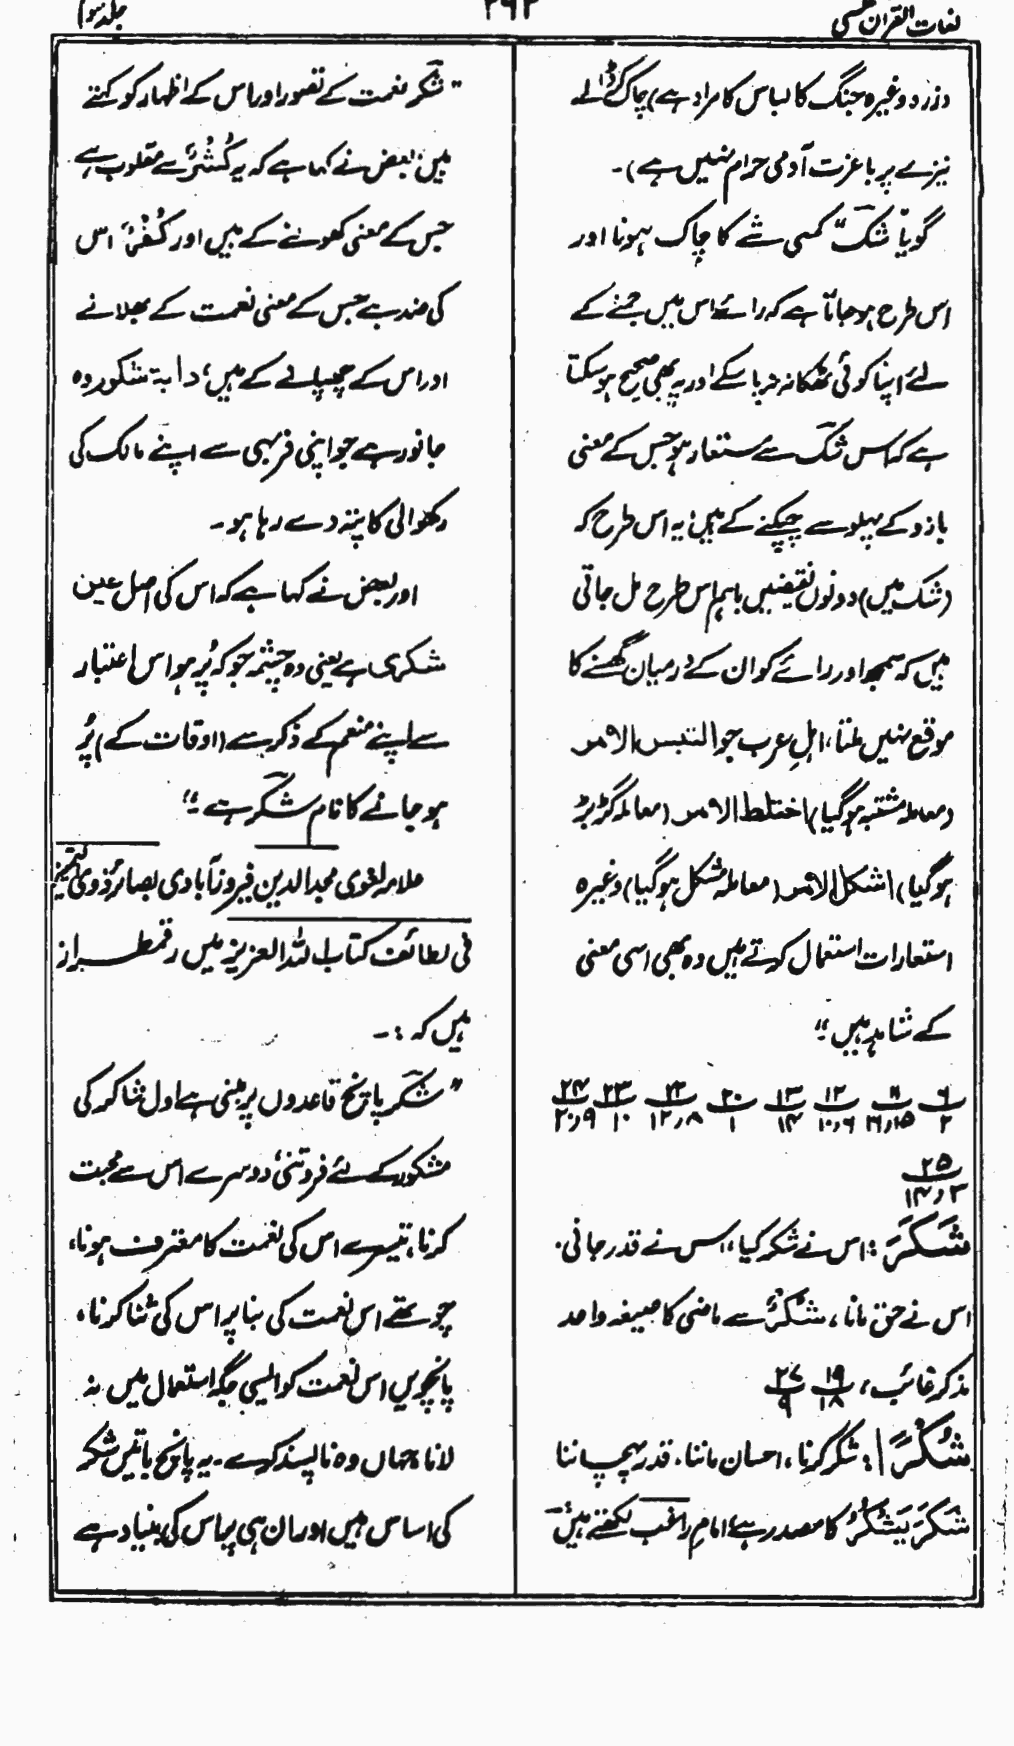 لغات القرآن
۲۹۲
جلد سوم
(زرہ وغیرہ جنگ کا لباس کا مراد ہے) چاک کر ڈالے
نیزے پر باعزت آدمی حرام نہیں ہے)۔
گویا "شک" کسی شے کا چاک ہونا اور
اس طرح ہو جانا ہے کہ رائے اس میں جمنے کے
لئے اپنا کوئی ٹھکانہ نہ پا سکے اور یہ بھی صحیح ہو سکتا
ہے کہ اس شک سے مستعار ہو جس کے معنی
بازو کے پہلو سے چپکنے کے ہیں؛ یہ اس طرح کہ
(شک میں) دونوں نقیضیں باہم اس طرح مل جاتی
ہیں کہ سمجھ اور رائے کو ان کے درمیان گھسنے کا
موقع نہیں ملتا، اہلِ عرب جو التبس الامر
(معاملہ مشتبہ ہو گیا) اختلط الامر (معاملہ گڑبڑ
ہو گیا) اشکل الامر (معاملہ مشکل ہو گیا) وغیرہ
استعارات استعمال کرتے ہیں وہ بھی اسی معنی
کے شاہد ہیں"
۶/۲ ۱۱/۱۵،۱۶ ۱۲/۶،۱۰ ۱۳/۱۴ ۲۰/۱ ۲۲/۸،۱۲ ۲۳/۱۰ ۲۴/۹،۲۰
۲۵/۳،۱۴
شَکَرَ: اس نے شکر کیا، اس نے قدر جانی۔
اس نے حق مانا، شُکْرٌ سے ماضی کا صیغہ واحد
مذکر غائب، ۱۹/۱۸ ۲۷/۹
شُکْرًا: شکر کرنا، احسان ماننا، قدر پہچاننا
شَکَرَ یَشْکُرُ کا مصدر ہے؛ امام راغب لکھتے ہیں:۔
"شکر نعمت کے تصور اور اس کے اظہار کو کہتے
ہیں؛ بعض نے کہا ہے کہ یہ کُشْرٌ سے مقلوب ہے
جس کے معنی کھولنے کے ہیں اور کُفْرٌ اس
کی ضد ہے جس کے معنی نعمت کے بھلانے
اور اس کے چھپالنے کے ہیں؛ دابۃ شکور وہ
جانور ہے جو اپنی فربہی سے اپنے مالک کی
رکھوالی کا پتہ دے رہا ہو۔
اور بعض نے کہا ہے کہ اس کی اصل عین
شکری ہے یعنی وہ چشمہ جو کہ پُر ہو اس اعتبار
سے اپنے منعم کے ذکر سے (اوقات کے) پُر
ہو جانے کا نام شکر ہے"
علامہ لغوی مجد الدین فیروزآبادی بصائر ذوی التمییز
فی لطائف کتاب اللہ العزیز میں رقمطراز
ہیں کہ:۔
"شکر پانچ قاعدوں پر مبنی ہے اول شاکر کی
مشکور کے لئے فروتنی؛ دوسرے اس سے محبت
کرنا، تیسرے اس کی نعمت کا معترف ہونا،
چوتھے اس نعمت کی بنا پر اس کی ثنا کرنا،
پانچویں اس نعمت کو ایسی جگہ استعمال میں نہ
لانا جہاں وہ ناپسند کرے۔ یہ پانچ باتیں شکر
کی اساس ہیں اور ان ہی پر اس کی بنیاد ہے